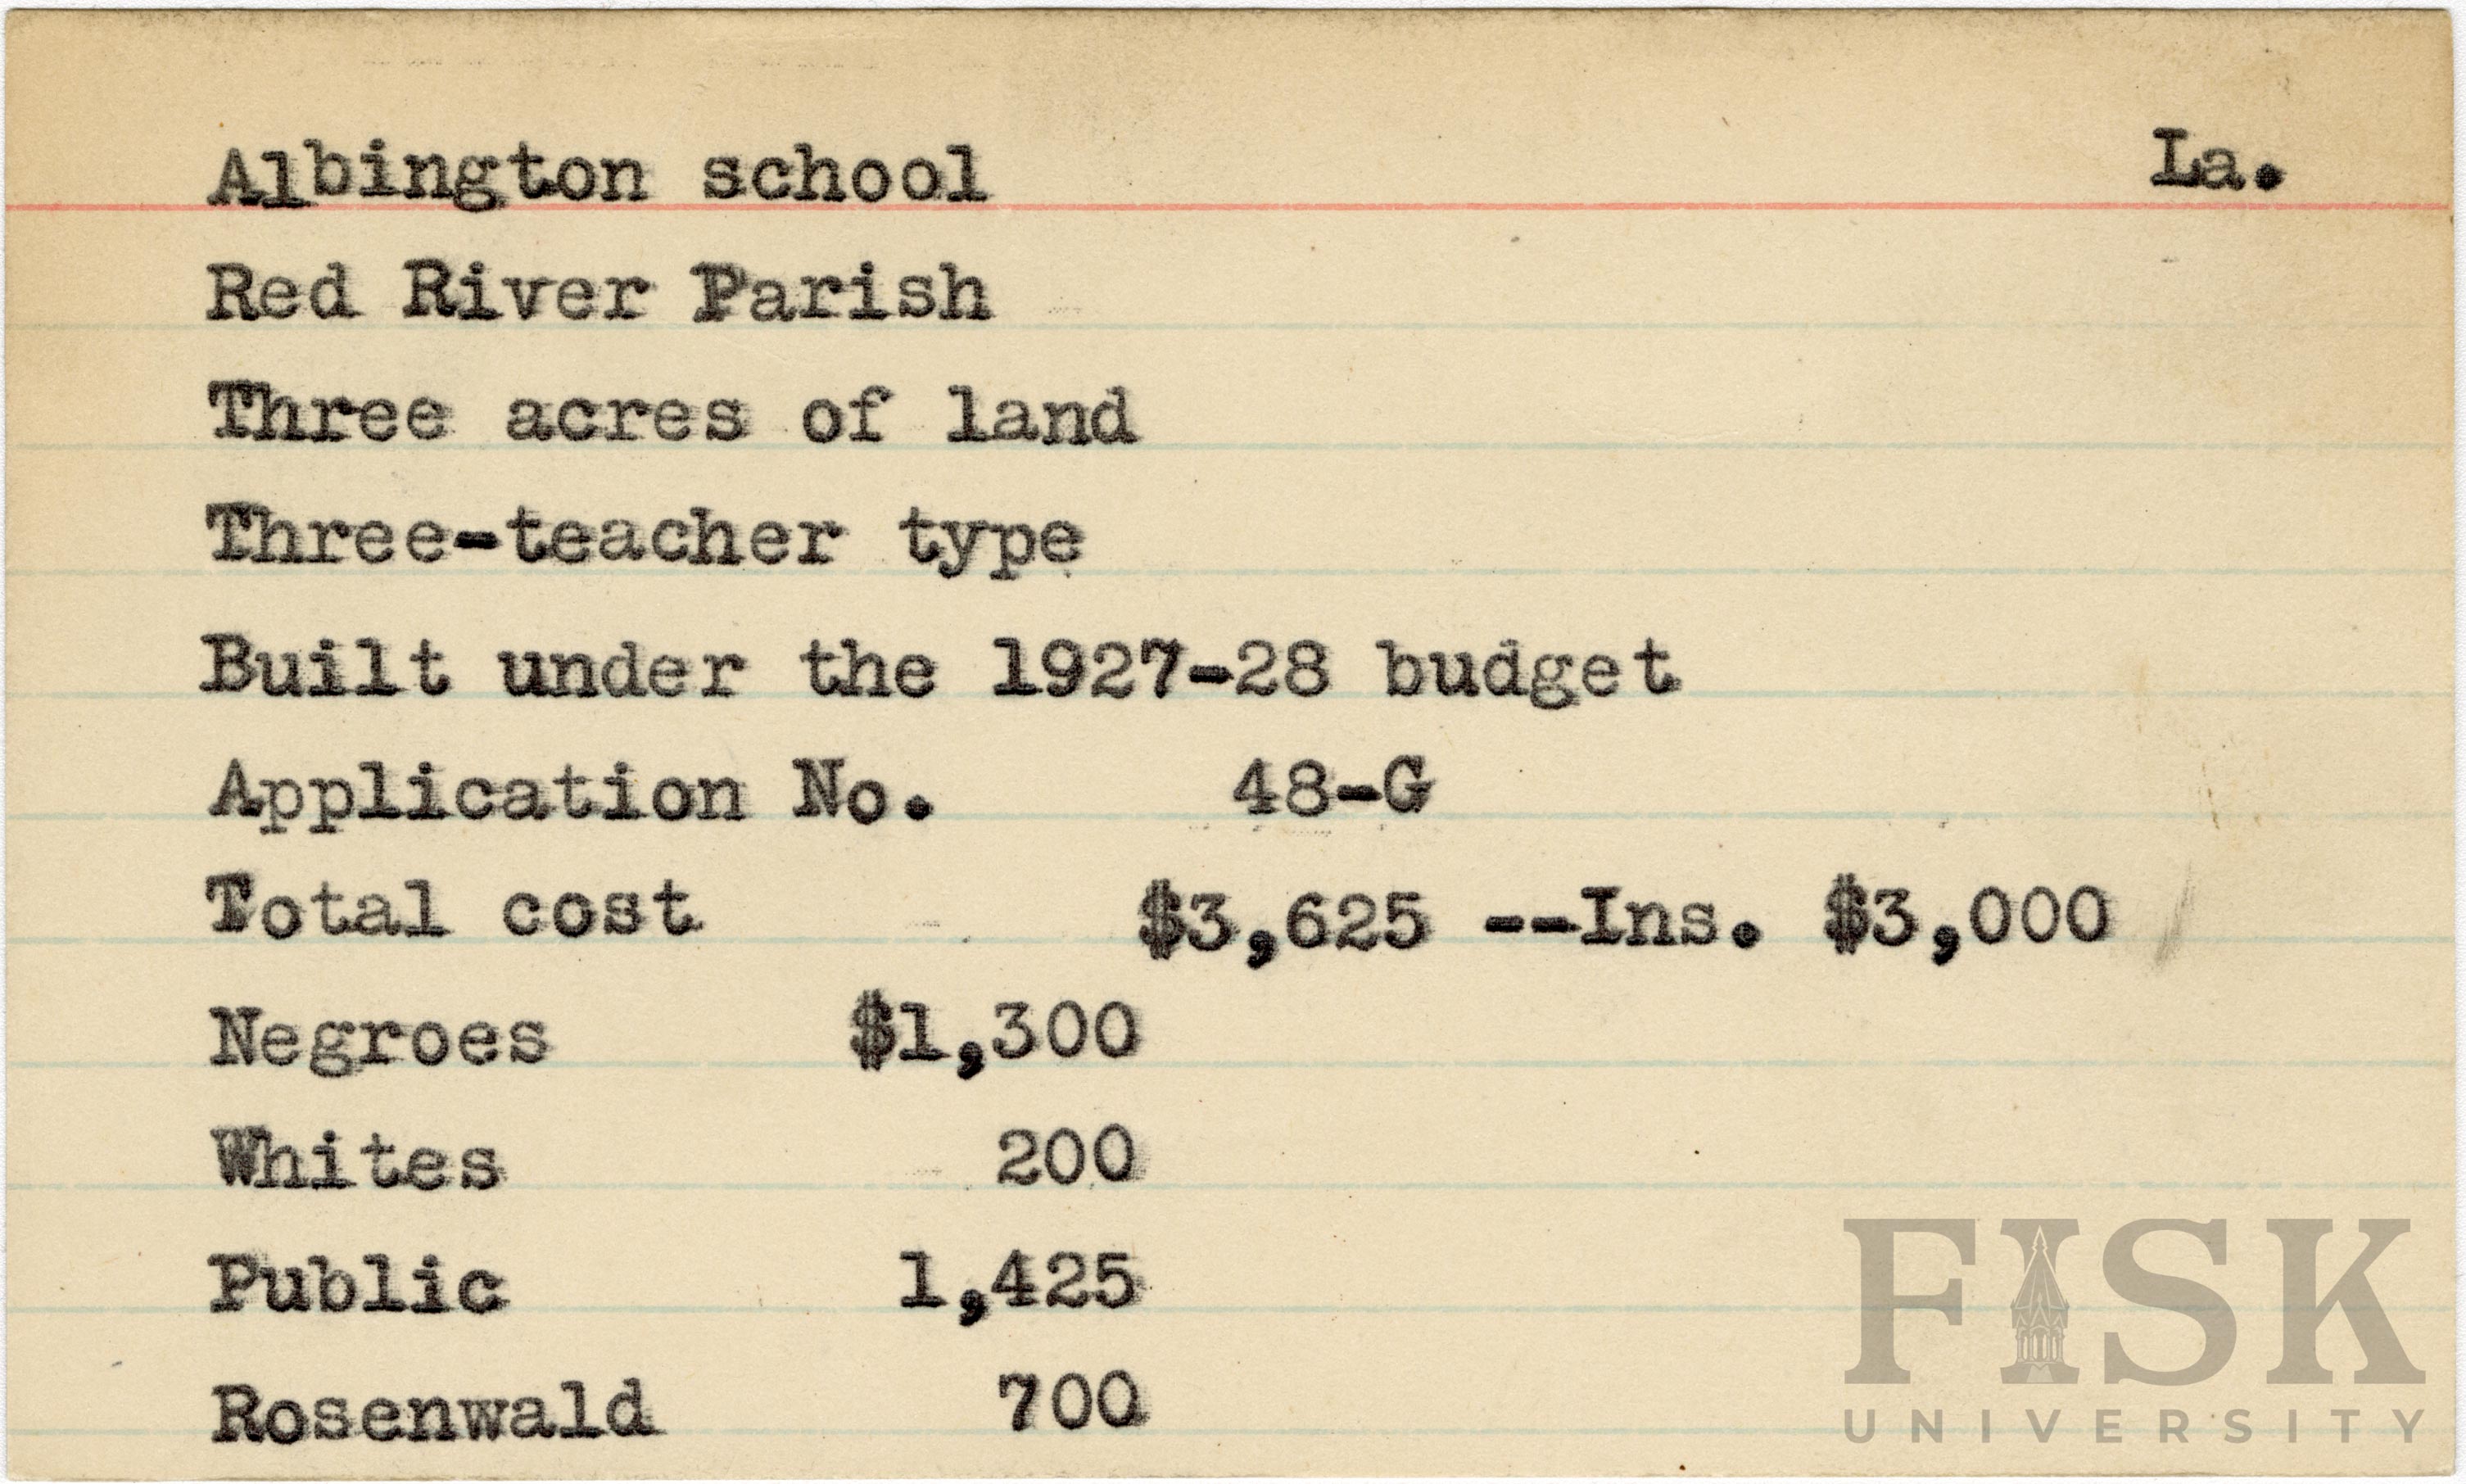 Albington school La.
Red River Parish
Three acres of land
Three-teacher type
Built under the 1927-28 budget
Application No. 48-G
Total cost $3,625 --Ins. $3,000
Negroes $1,300
Whites 200
Public 1,425
Rosenwald 700
FISK
UNIVERSITY